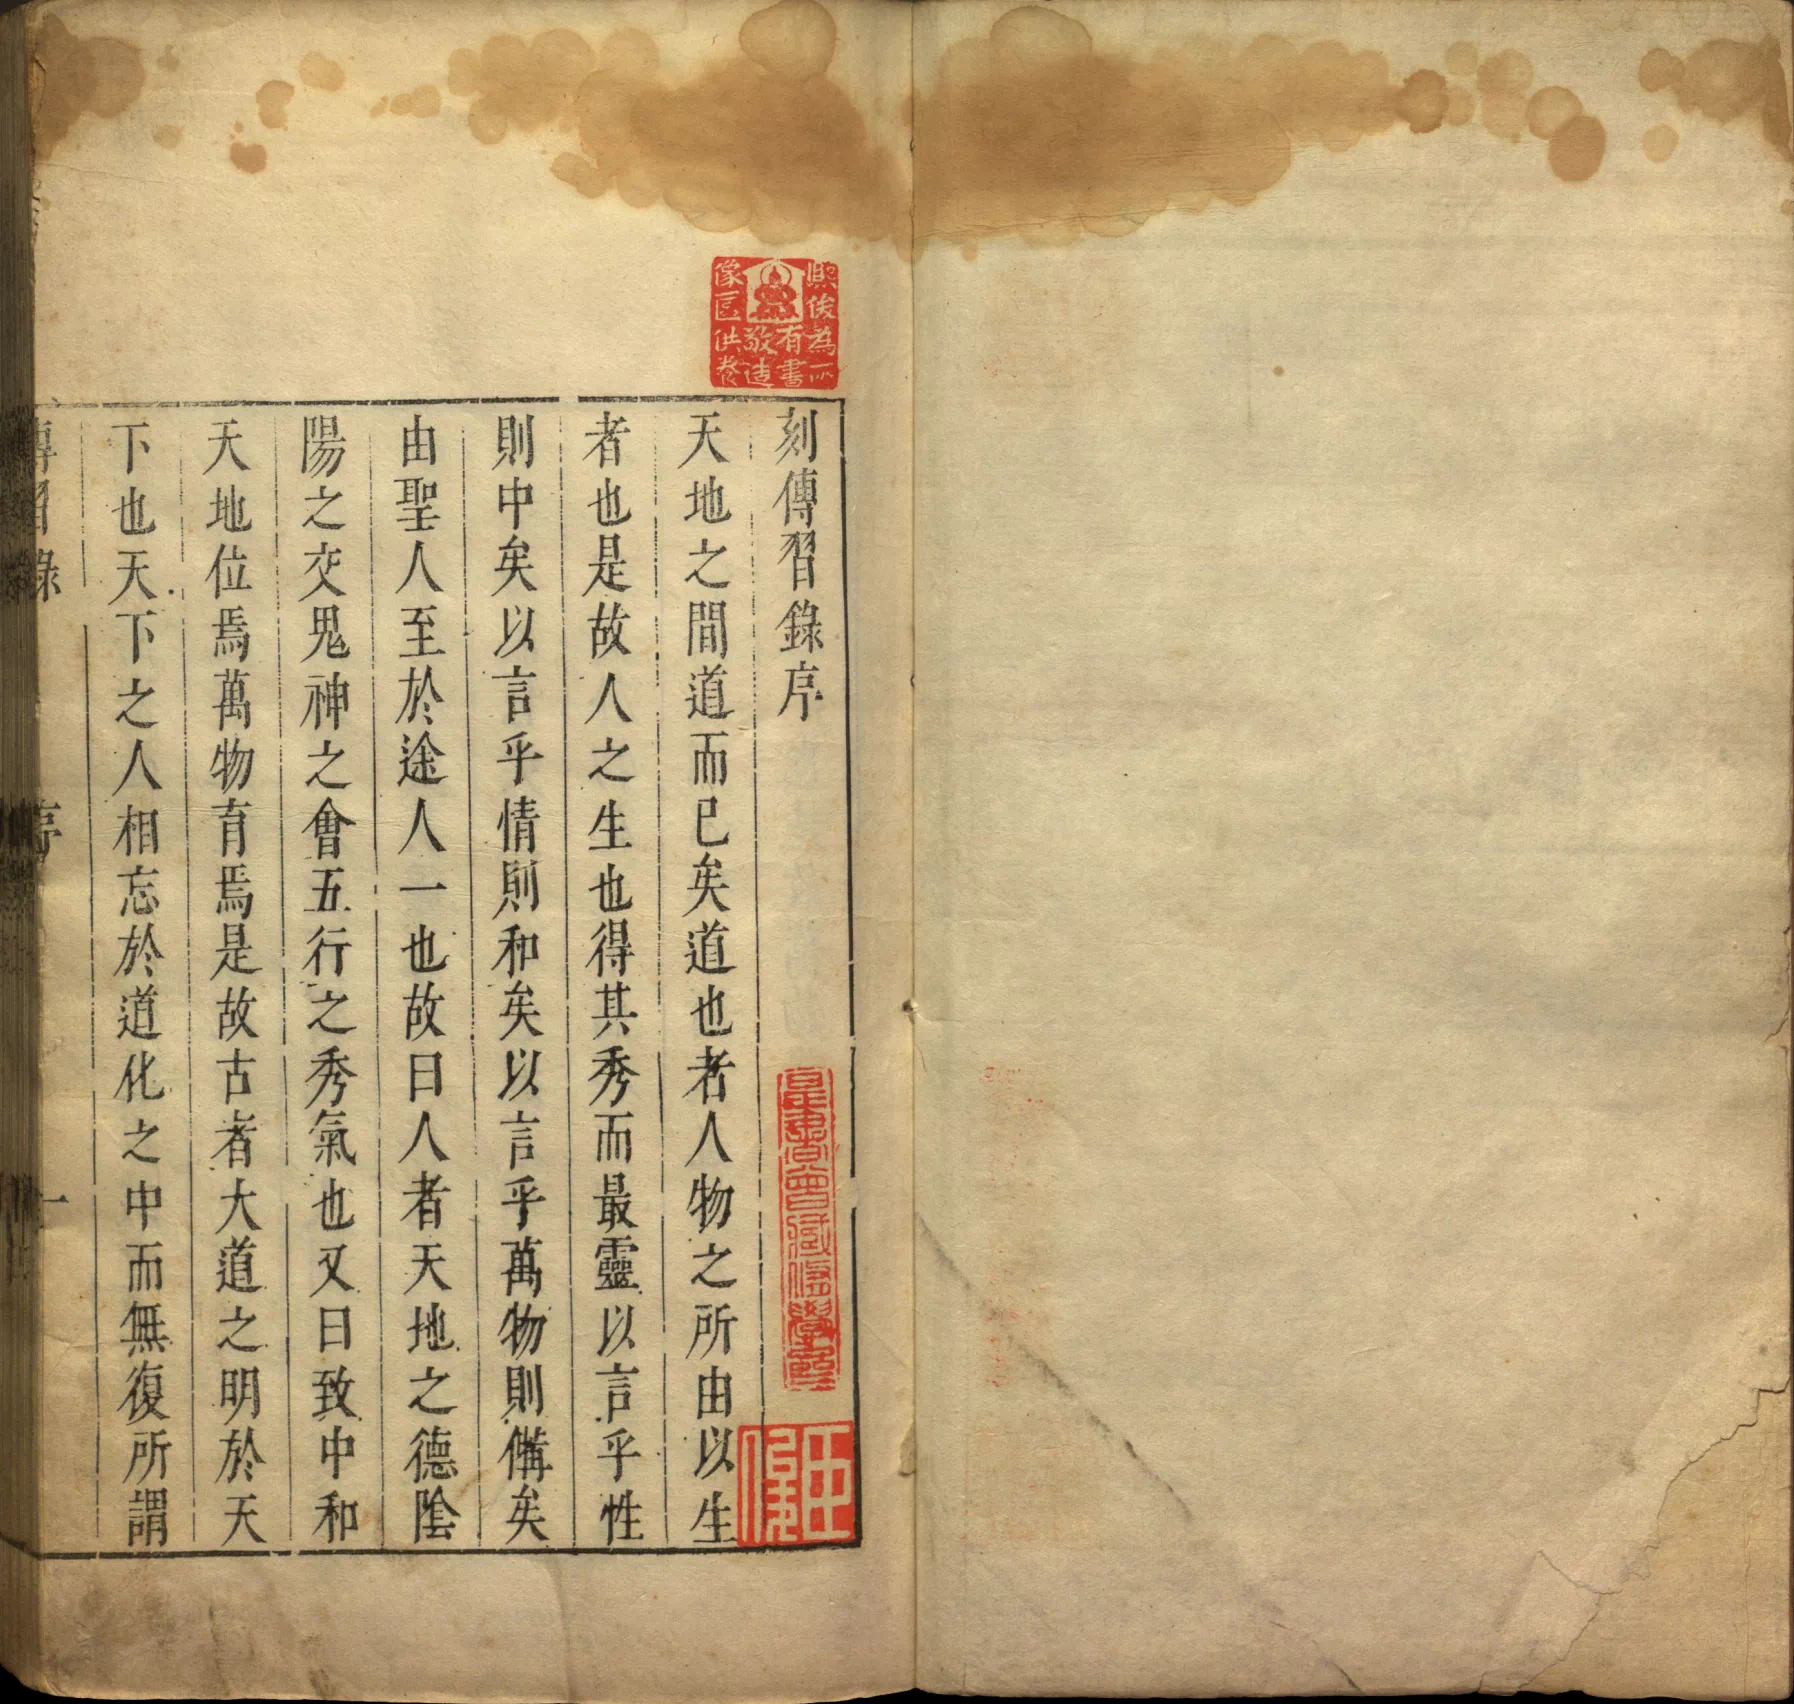 刻傳習錄序
天地之間道而已矣道也者人物之所由以生
者也是故人之生也得其秀而最靈以言乎性
則中矣以言乎情則和矣以言乎萬物則備矣
由聖人至於途人一也故曰人者天地之德陰
陽之交鬼神之會五行之秀氣也又曰致中和
天地位焉萬物育焉是故古者大道之明於天
下也天下之人相忘於道化之中而無復所謂
傳習錄
序
一